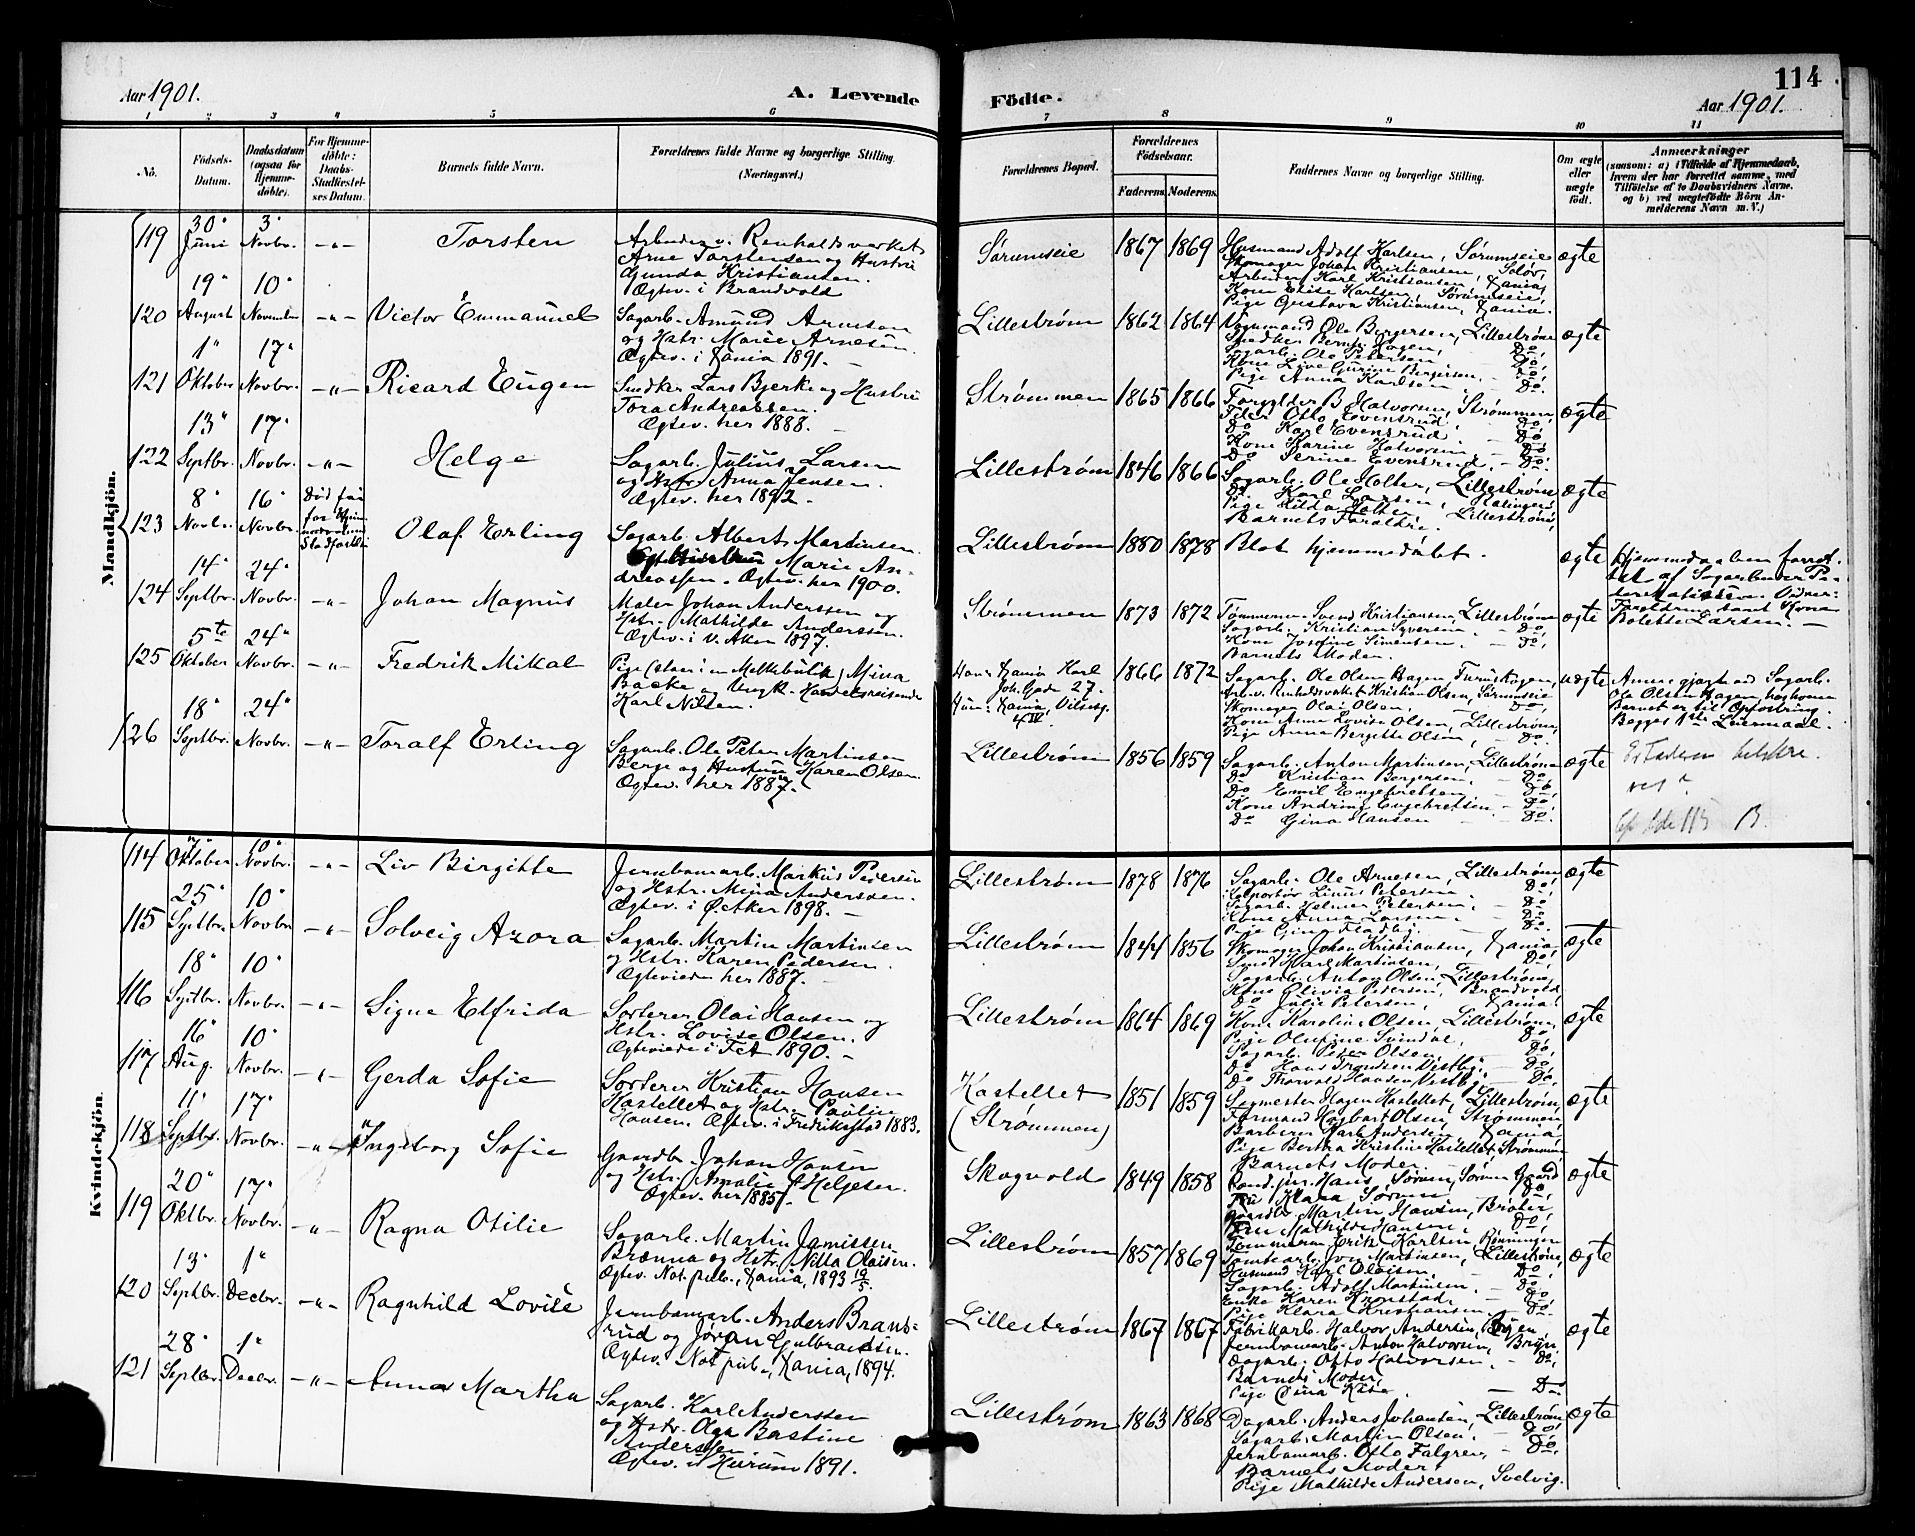 114
Aar 1901.
A. Levende
Födte.
Aar 1901.
1 2 3 4 5 6 7 8 9 10 11
No.
Födsels-
Datum.
Daabsdatum
(ogsaa for
Hjemme-
döbte).
For Hjemme-
döbte:
Daabs-
Stadfæstel-
ses Datum.
Barnets fulde Navn.
Forældrenes fulde Navne og borgerlige Stilling.
(Næringsvei.)
Forældrenes Bopæl.
Forældrenes
Födselsaar.
Faderens. Moderens.
Faddernes Navne og borgerlige Stilling.
Om ægte
eller
uægte
födt.
Anmærkninger
(saasom: a) i Tilfælde af Hjemmedaab,
hvem der har forrettet samme, med
Tilföielse af to Daabsvidners Navne,
og b) ved uægtefödte Börn An-
melderens Navn m. V.)
Mandkjön.
119 30" Juni 3" Novbr. -"- Torsten
Arbeider v. Renholdsverket
Arne Torstensen og Hustru
Gunda Kristiansen.
Ægtev. i Brandvold
Sørumseie 1867 1869
Husmand Adolf Karlsen, Sørumseie
Skomager Johan Kristiansen, Solør,
Arbeider Karl Kristiansen, Xania,
Kone Elise Karlsen, Sørumseie,
Pige Gustava Kristiansen, Xania.
ægte
120 19" August 10" November -"- Victor Emmanuel
Sagarb. Amund Arnesen
og Hstr. Marie Arnesen.
Ægtev. i Xania 1891. —
Lillestrøm 1862 1864
Vognmand Ole Bergersen, Lillestrøm
Snedker Bernt Hagen, — Do,
Sagarb. Ole Petersen, — Do,
Kone Live Gurine Bergersen. — Do,
Pige Anna Karlsen — Do.
ægte
121 1" Oktober 17" Novbr. -"- Ricard Eugen
Snedker Lars Bjerke og Hustru
Tora Andreassen.
Ægtev. her 1888. —
Strømmen 1865 1866
Forgylder B. Halvorsen, Strømmen,
Peter Otto Evensrud, — Do,
Do Karl Evensrud. — Do,
Kone Karine Halvorsen — Do,
Do Serine Evensrud. — Do.
ægte
122 13" Septbr. 17" Novbr. -"- Helge
Sagarb. Julius Larsen
og Hstr. Anna Jensen.
Ægtev. her 1892.
Lillestrøm 1846 1866
Sagarb. Ole Holter, Lillestrøm
Do. Karl Larsen,
Pige Hilda Holter, Lillestrøm,
Barnets Forældre.
ægte
123 8" Novbr. 16" Novbr. Død før
Stadfæstelse
Olaf Erling
Sagarb. Albert Martinsen
Marie An-
dreassen. Ægtev. her 1900.
Lillestrøm 1880 1878
Blot hjemmedøbt.
ægte
Hjemmedaaben forret-
tet af Sagarbeider Pe-
der Mathisen. Vidner:
Forældrene samt Kone
Bolette Larsen. —
124 14" Septbr. 24" Novbr. -"- Johan Magnus
Maler Johan Anderssen og
Hstr. Mathilde Anderssen.
Ægtev. i V. Aker 1897.
Strømmen 1873 1872
Tømmerm. Svend Kristiansen, Lillestrøm
Sagarb. Kristian Syversen. — Do,
Kone Josefine Simensen. — Do,
Barnets Moder.
ægte
125 5te Oktober 24" Novbr. -"- Fredrik Mikal
Pige (staar i en Melkebutik) Mina
Backe og Ungk. Handelsreisende
Karl Nilsen.
Hans: Xania Karl
Joh. Gade 27.
Hun: Xania,
4 IV.
1866 1872
Sagarb. Ole Olsen Hagen,
Arb. v. Renholdsverket Kristian Olsen, Sørumseie
Skomager Olai Olsen, — Do,
Kone Anna Lovise Olsen, Lillestrøm,
Pige Anna Bergitte Olsen, — Do.
uægte
Anm. gjort ved Sagarb.
Ole Olsen Hagen, hos hvem
Barnet er til Opfostring.
Begges 1ste Leiermaal.
126 18" Septbr. 24" Novbr. -"- Toralf Erling
Sagarb. Ole Peter Martinsen
Berge og Hustru Karen Olsen.
Ægtev. her 1887.
Lillestrøm 1856 1859
Sagarb. Anton Martinsen, Lillestrøm
Do Kristian Bergersen. — Do,
Do Emil Engebretsen — Do,
Kone Andrine Engebretsen — Do,
Do Gina Hansen — Do.
ægte
Kvindekjön.
114 7" Oktober 10" Novbr. -"- Liv Birgitte
Jernbanearb. Markus Pedersen
og Hstr. Mina Anderssen.
Ægtev. i Ø. Aker 1898. —
Lillestrøm 1878 1876
Sagarb. Ole Arnesen, Lillestrøm
Kolportør Linus Petersen, Do,
Sagarb. Helmer Petersen, — Do
Kone Anna Larsen. — Do,
Pige Gina Fladby. — Do.
ægte
115 25" Septbr. 10" Novbr -"- Solveig Azora
Sagarb. Martin Martinsen
og Hstr. Karen Pedersen.
Ægteviede her 1887. —
Lillestrøm 1844 1856
Skomager Johan Kristiansen, Xania,
Smed Karl Martinsen, Do,
Sagarb. Anton Olsen, Lillestrøm,
Kone Olivia Petersen, Brandvold
Do Julie Petersen, Xania.
ægte
116 18" Septbr. 10" Novbr. -"- Signe Elfrida
Sorterer Olai Hansen og
Hstr. Lovise Olsen.
Ægteviede i Fet 1890. —
Lillestrøm 1864 1869
Kone Karoline Olsen, Lillestrøm,
Pige Olufine Svindal, Do,
Sagarb. Peder Olsen, — Do,
Do Hans Trondsen Vestby, — Do,
Do Thorvald Hansen Vestby, — Do,
ægte
117 16" Aug. 10" Novbr. -"- Gerda Sofie
Sorterer Kristian Hansen
Kastellet og Hstr. Pauline
Hansen. Ægtev. i Fredrikstad 1883.
Kastellet
(Strømmen)
1851 1859
Segmester Hagen Kastellet, Lillestrøm,
Formand Hagbart Olsen, Strømmen,
Barberer Karl Andersen, Xania
Pige Bertha Kristine Kastellet Strømmen
Barnets Moder.
ægte
118 11" Septbr. 17" Novbr. -"- Ingeborg Sofie
Gaardbr. Johan Hansen
og Hstr. Amalie Helgesen.
Ægtev. her 1885.
Skogvold 1849 1858
Kand. jur. Hans Sørum, Sørum Gaard
Fru Klara Sørum Do,
Gaardbr. Martin Hansen, Bråter,
Fru Mathilde Hansen, Do,
ægte
119 20" Oktbr. 17" Novbr. -"- Ragna Otilie
Sagarb. Martin Jamissen
Brænna og Hstr. Nilla Olaisen.
Ægtev. Not. pub., Xania, 1893 19/5.
Lillestrøm 1857 1869
Tømmerm. Erik Karlsen, Rønningen
Tomtearb. Iver Martinsen, Lillestrøm,
Husmand Karl Olaisen, — Do,
Sagarb. Adolf Martinsen. — Do
Enke Karen Kronstad. — Do,
Pige Klara Kristiansen. — Do.
ægte
120 13" Septbr. 1" Decbr. -"- Ragnhild Lovise
Jernbanearb. Anders Brans-
rud og Jøran Gulbrandsen.
Ægtev. Not. pub., Xania, 1894.
Lillestrøm 1867 1867
Fabrikarb. Halvor Andersen, Bryn,
Jernbanearb. Anton Halvorsen, Bryn,
Sagarb. Otto Halvorsen, — Do,
Barnets Moder,
Pige — Do
ægte
121 28" Septbr. 1" Decbr. -"- Anna Martha
Sagarb. Karl Anderssen
og Hstr. Olga Bastine
Anderssen
Ægtev. i Hurum 1891.
Lillestrøm 1863 1868
Dagarb. Anders Johansen, Lillestrøm
Sagarb. Martin Olsen. — Do,
Jernbanearb. Otto Falgren, — Do,
Barnets Moder,
Pige Mathilde Andersen, Svelvig.
ægte